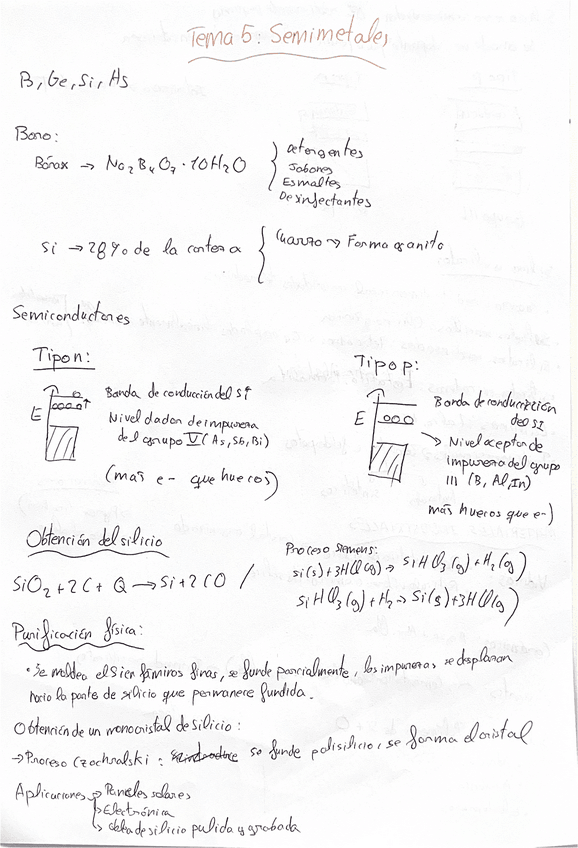 Tema 5: Semimetales
B, Ge, Si, As
Boro:
Bórax → Na2B4O7 · 10H2O
Detergentes
Jabones
Esmaltes
Desinfectantes
Si → 28% de la corteza
Cuarzo → Forma granito
Semiconductores
Tipo n:
E
Banda de conducción del Si
Nivel dador de impureza
del grupo V (As, Sb, Bi)
(más e- que huecos)
Tipo p:
E
Banda de conducción
del Si
→ Nivel aceptor de
impureza del grupo
III (B, Al, In)
más huecos que e-)
Obtención del silicio
SiO2 + 2C + Q → Si + 2CO /
Proceso Siemens:
Si(s) + 3HCl(g) → SiHCl3(g) + H2(g)
SiHCl3(g) + H2 → Si(s) + 3HCl(g)
Purificación física:
· Se moldea el Si en láminas finas, se funde parcialmente, las impurezas se desplazan
hacia la parte de silicio que permanece fundida.
Obtención de un monocristal de silicio:
→ Proceso Czochralski: se funde polisilicio, se forma el cristal
Aplicaciones → Paneles solares
→ Electrónica
→ de silicio pulida y grabada